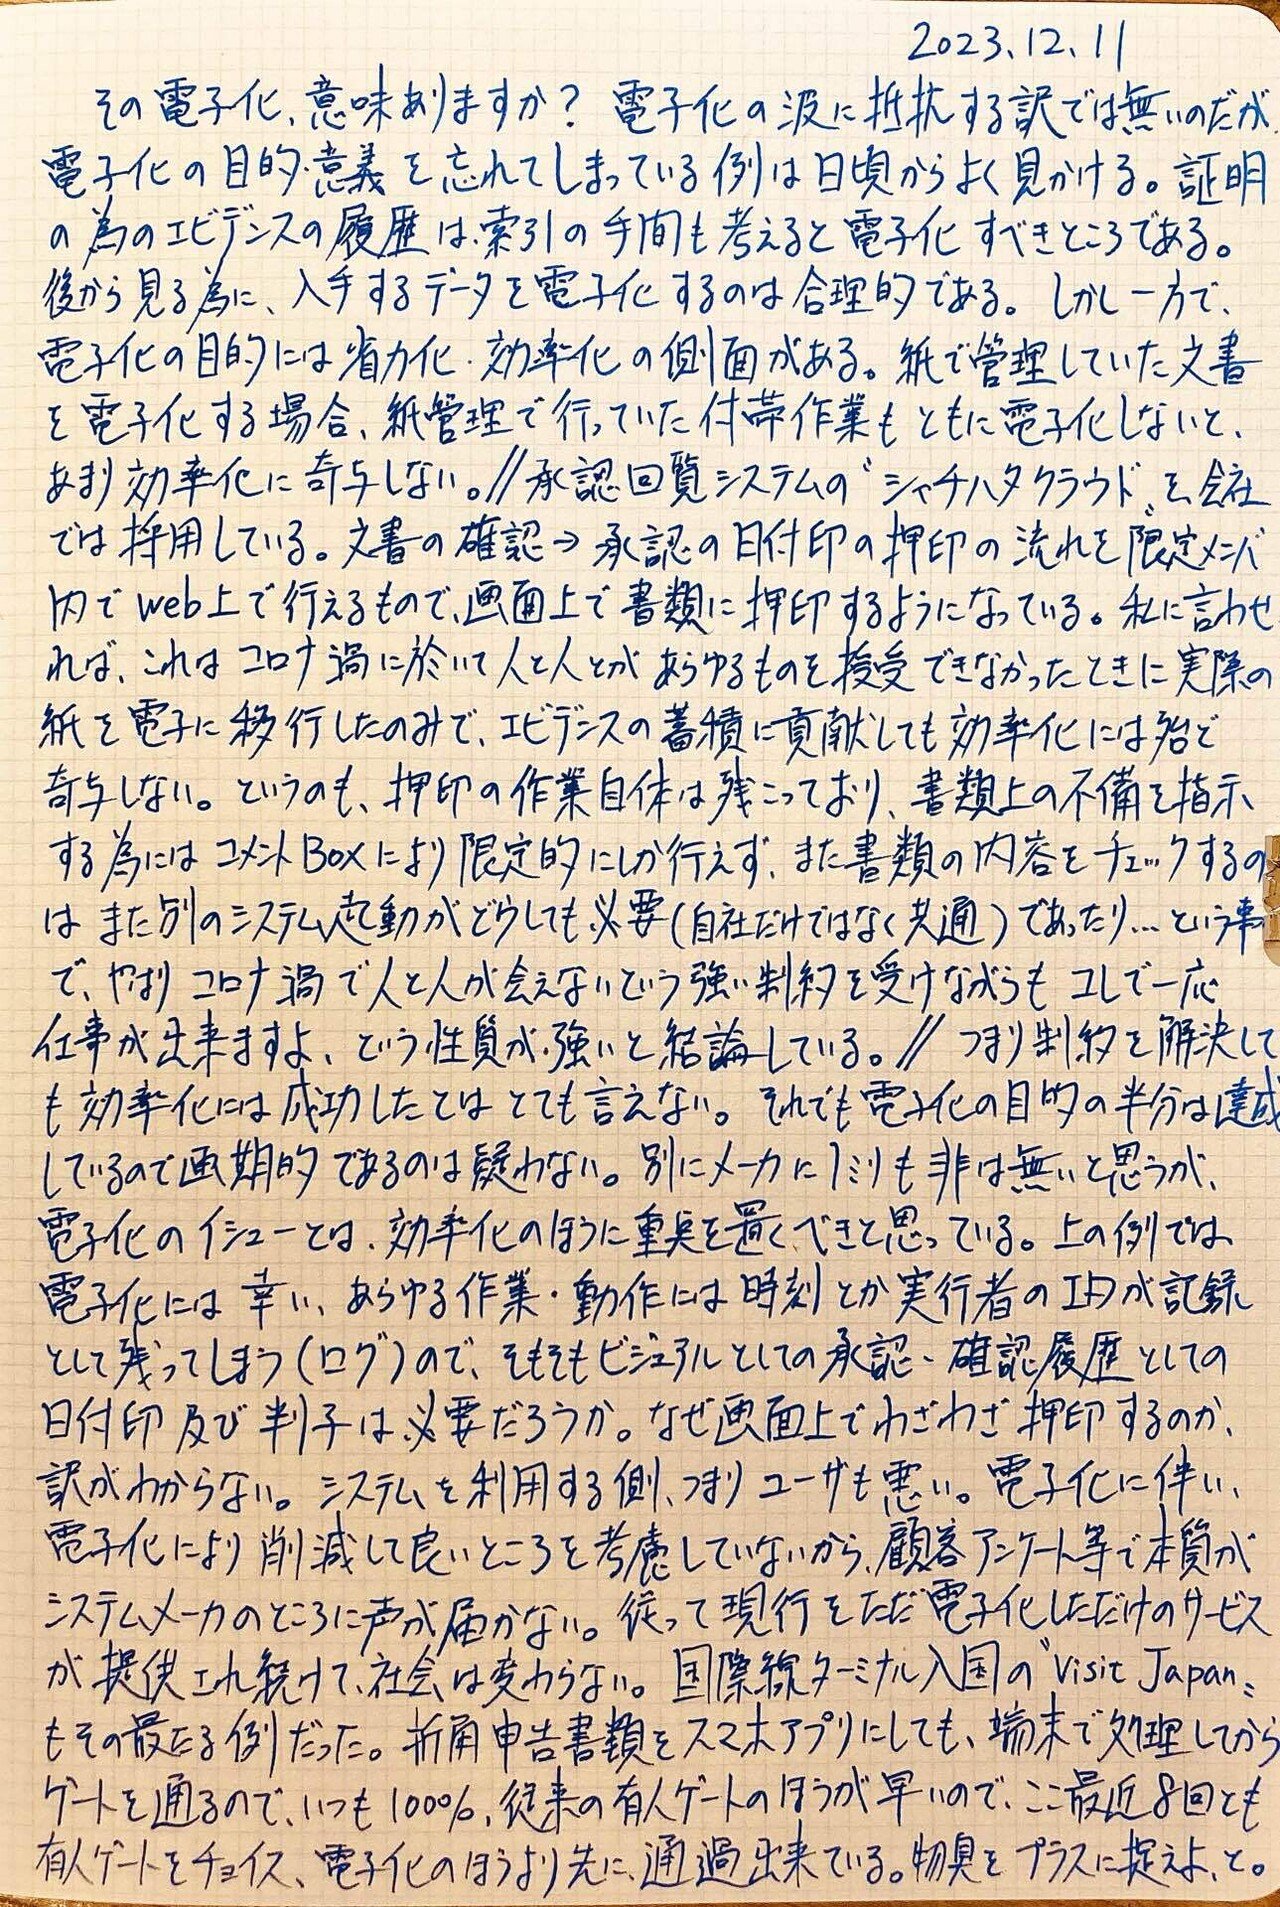 2023.12.11
その電子化、意味ありますか？ 電子化の波に抵抗する訳では無いのだが、
電子化の目的・意義を忘れてしまっている例は日頃からよく見かける。証明
の為のエビデンスの履歴は、索引の手間も考えると電子化すべきところである。
後から見る為に、入手するデータを電子化するのは合理的である。しかし一方で、
電子化の目的には省力化・効率化の側面がある。紙で管理していた文書
を電子化する場合、紙管理で行っていた付帯作業もともに電子化しないと、
あまり効率化に寄与しない。//承認回覧システムの〝シャチハタクラウド〟を会社
では採用している。文書の確認→承認の日付印の押印の流れを限定メンバ
内でweb上で行えるもので、画面上で書類に押印するようになっている。私に言わせ
れば、これはコロナ渦に於いて人と人とがあらゆるものを授受できなかったときに実際の
紙を電子に移行したのみで、エビデンスの蓄積に貢献しても効率化には殆ど
寄与しない。というのも、押印の作業自体は残こっており、書類上の不備を指示
する為にはコメントBoxにより限定的にしか行えず、また書類の内容をチェックするの
はまた別のシステム起動がどうしても必要(自社だけではなく共通)であったり…という事
で、やはりコロナ渦で人と人が会えないという強い制約を受けながらもコレで一応
仕事が出来ますよ、という性質が強いと結論している。// つまり制約を解決して
も効率化には成功したとはとても言えない。それでも電子化の目的の半分は達成
しているので画期的であるのは疑わない。別にメーカに1ミリも非は無いと思うが、
電子化のイシューとは、効率化のほうに重点を置くべきと思っている。上の例では
電子化には幸い、あらゆる作業・動作には時刻とか実行者のIDが記録
として残ってしまう(ログ)ので、そもそもビジュアルとしての承認、確認履歴としての
日付印及び判子は必要だろうか。なぜ画面上でわざわざ押印するのか、
訳がわからない。システムを利用する側、つまりユーザも悪い。電子化に伴い、
電子化により削減して良いところを考慮していないから、顧客アンケート等で本質が
システムメーカのところに声が届かない。従って現行をただ電子化しただけのサービス
が提供され続けて、社会は変わらない。国際線ターミナル入国の〝Visit Japan〟
もその最たる例だった。折角申告書類をスマホアプリにしても、端末で処理してから
ゲートを通るので、いつも100%、従来の有人ゲートのほうが早いので、ここ最近8回とも
有人ゲートをチョイス、電子化のほうより先に通過出来ている。物臭をプラスに捉えよ、と。